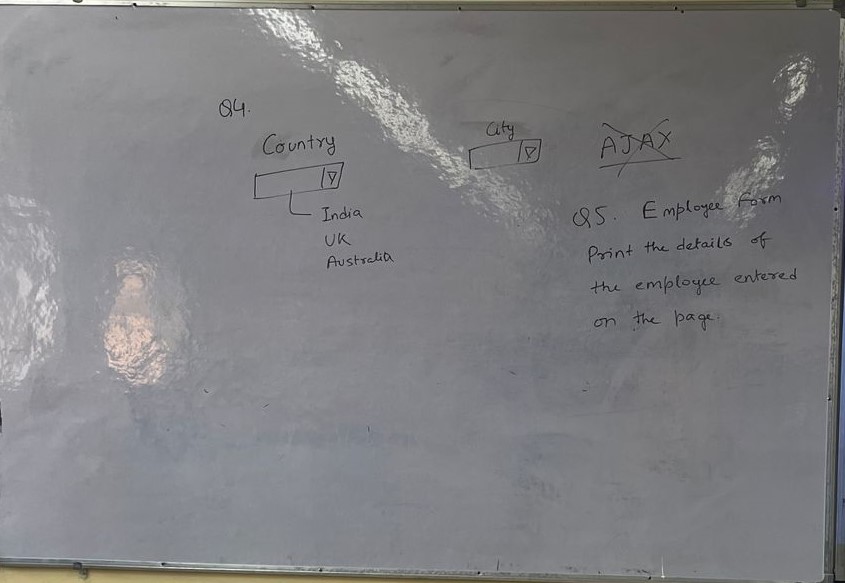 Q4.
Country
India
UK
Australia
City
AJAX
Q5. Employee Form
Print the details of
the employee entered
on the page.